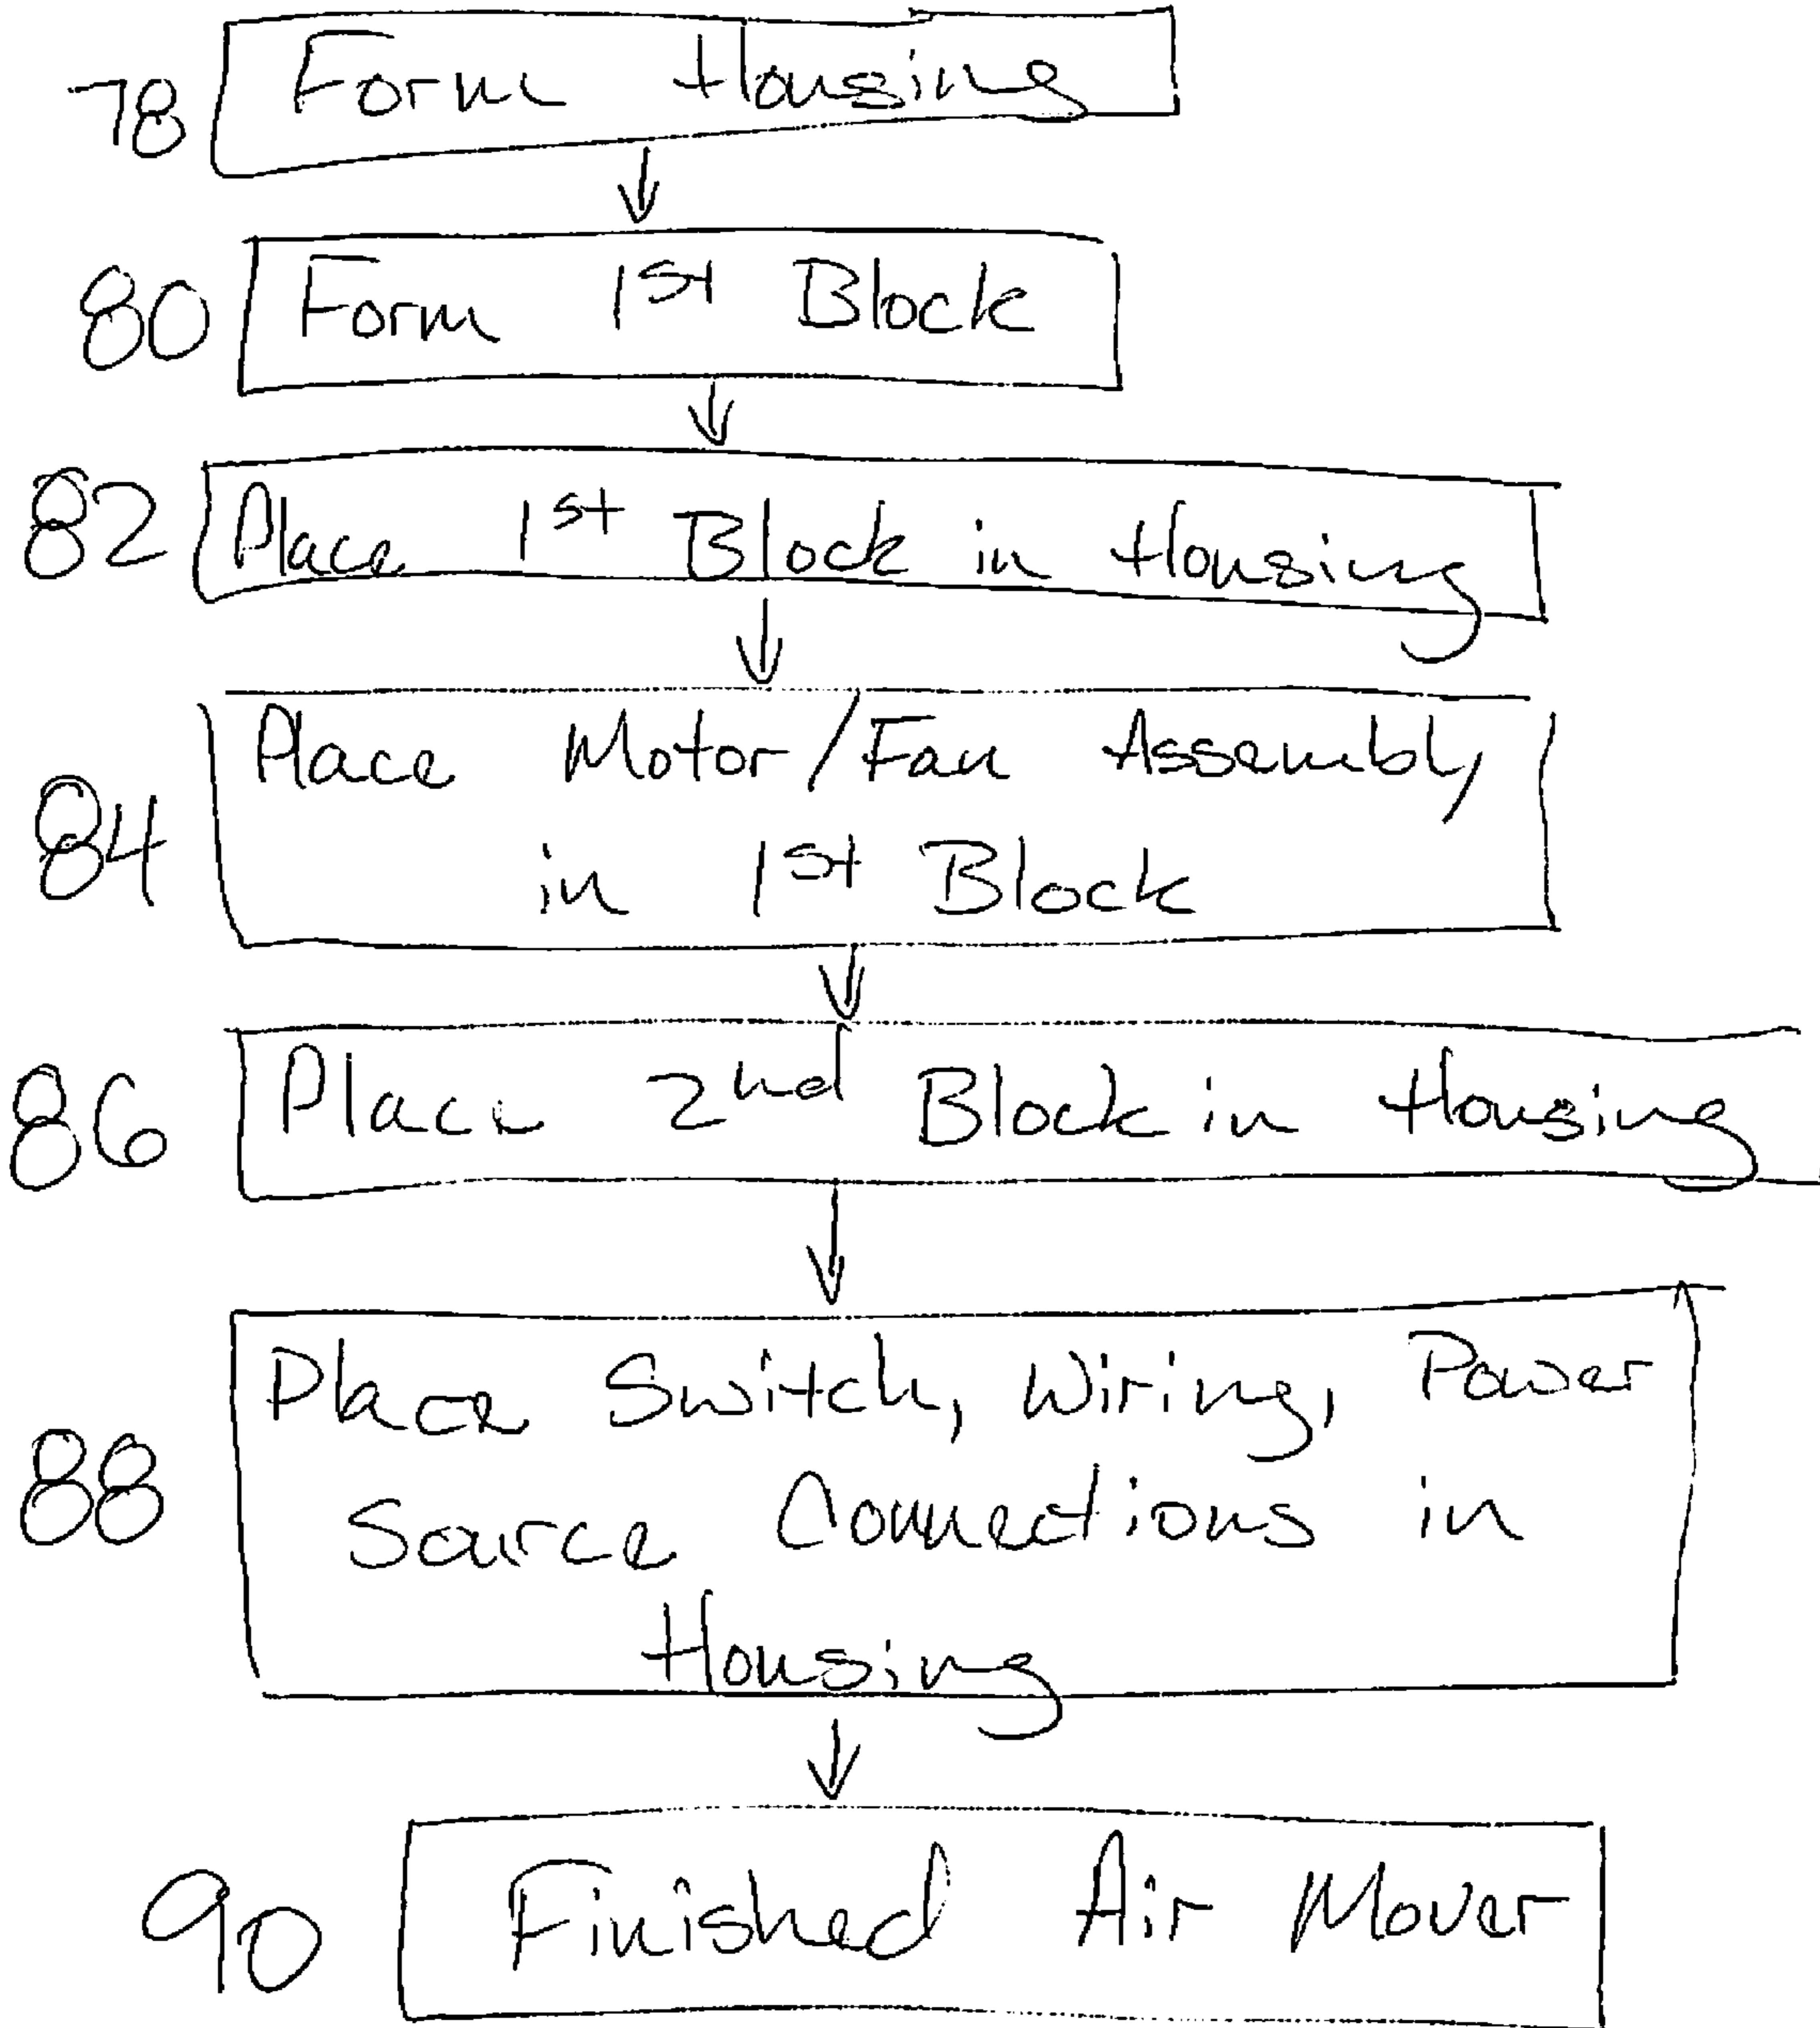 78 Form Housing
80 Form 1st Block
82 Place 1st Block in Housing
Place Motor/Fan Assembly
84
in 1st Block
86 Place 2nd Block in Housing
Place Switch, Wiring, Power
88 Source Connections in
Housing
90 Finished Air Mover